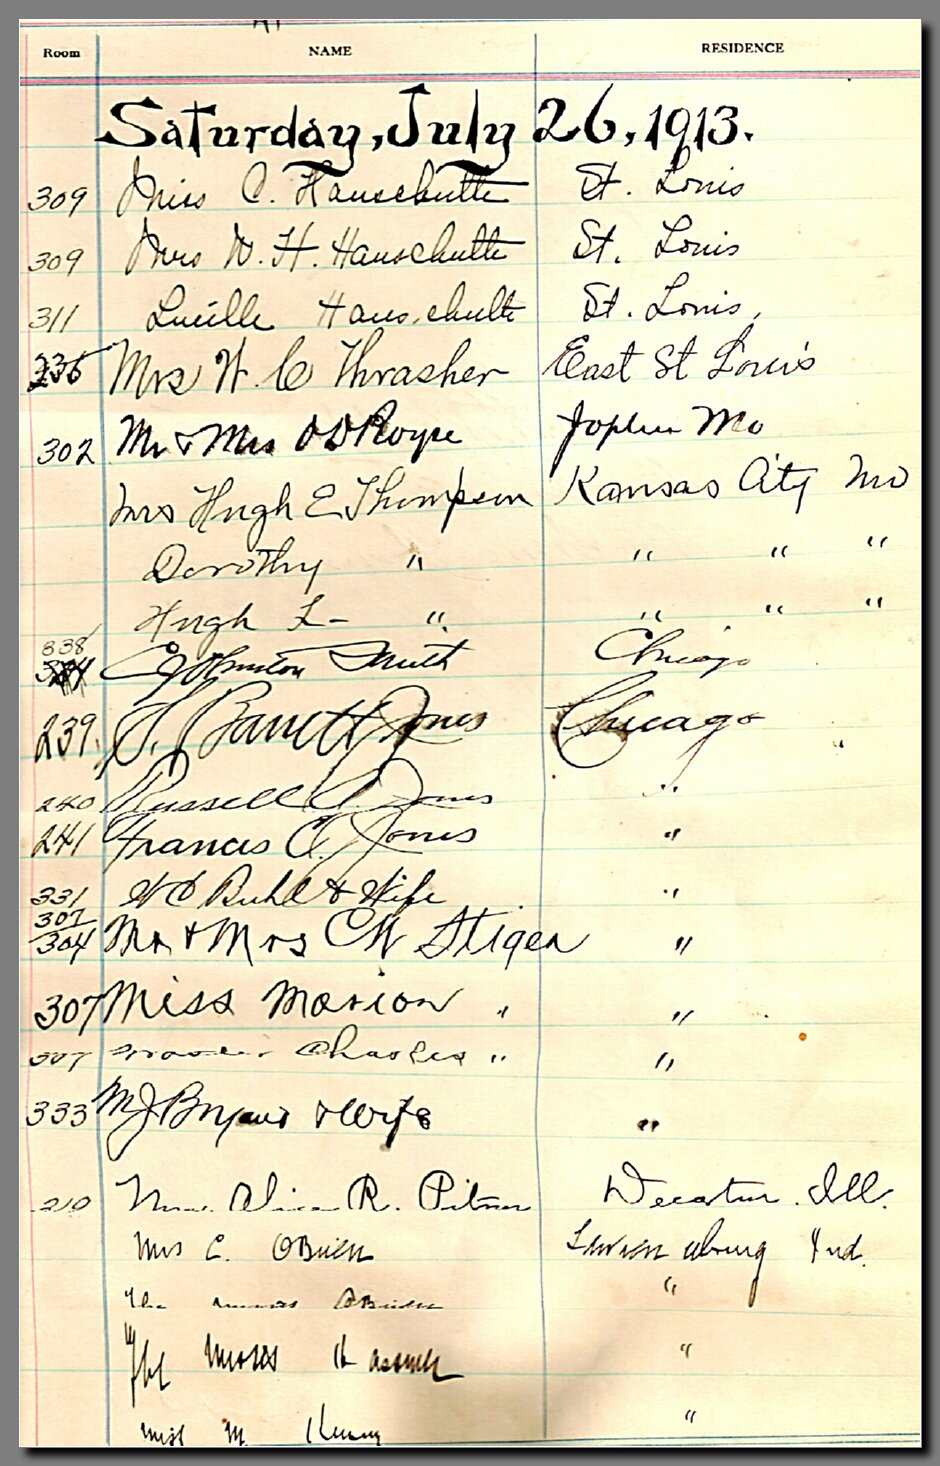 Room NAME RESIDENCE
Saturday, July 26, 1913.
309 Miss C. Hauschulte St. Louis
309 Mrs W. H. Hauschulte St. Louis
311 Lucille Hauschulte St. Louis,
Mrs W C Thrasher East St Louis
302 Mr & Mrs O D Royse Joplin Mo
Mrs Hugh E Thompson Kansas City Mo
Dorothy " " " "
Hugh " " " "
338 Johnston Smith Chicago
239. S. Barrett Jones Chicago
240 Russell Jones "
241 Francis C. Jones "
331 W C Buhl & Wife "
307
304 Mr & Mrs C W Stiger "
307 Miss Marion " "
307 Master Charles " "
333 M J Bryant & Wife "
210 Mrs. Alice R. Pitner Decatur. Ill.
Mrs C. OBrien Ind.
The Misses OBrien "
The Misses "
Miss M. "